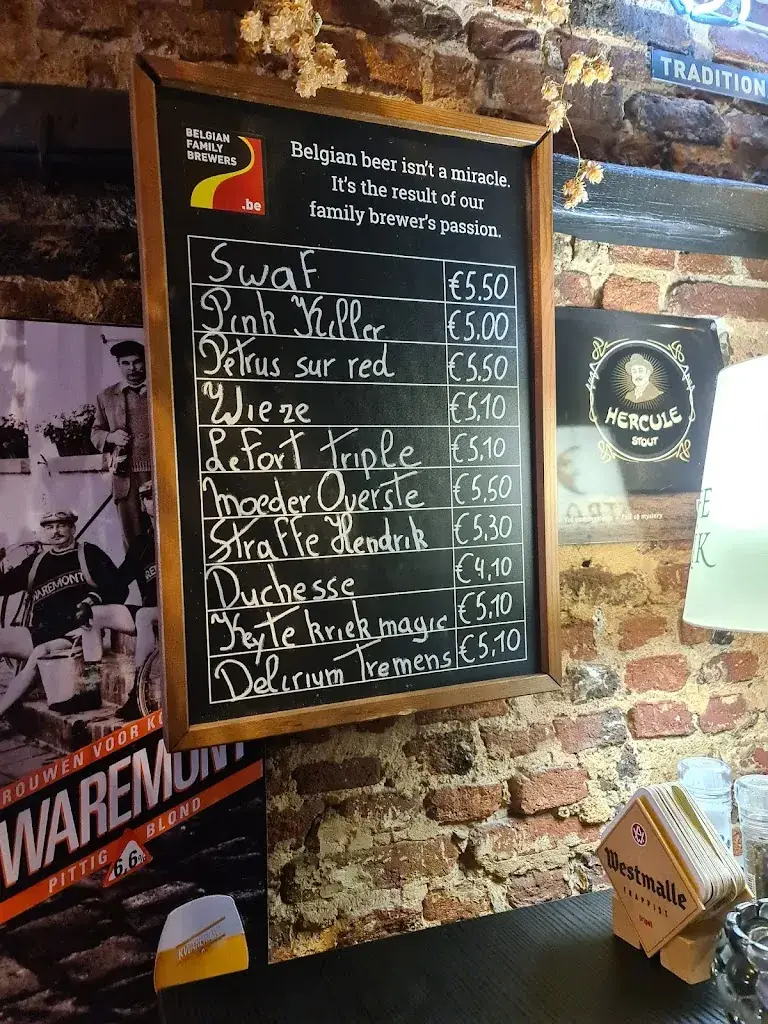 TRADITION
BELGIAN
FAMILY
BREWERS
.be
Belgian beer isn't a miracle.
It's the result of our
family brewer's passion.
Swaf €5.50
Pink Killer €5,00
Petrus sur red €5.50
Wieze €5,10
LeFort triple €5,10
Moeder Overste €5.50
Straffe Hendrik €5,30
Duchesse €4,10
Keyte kriek magic €5,10
Delirium Tremens €5,10
HERCULE
STOUT
WAREMONT
KWAREMONT
PITTIG BLOND
6,6
Westmalle
TRAPPIST